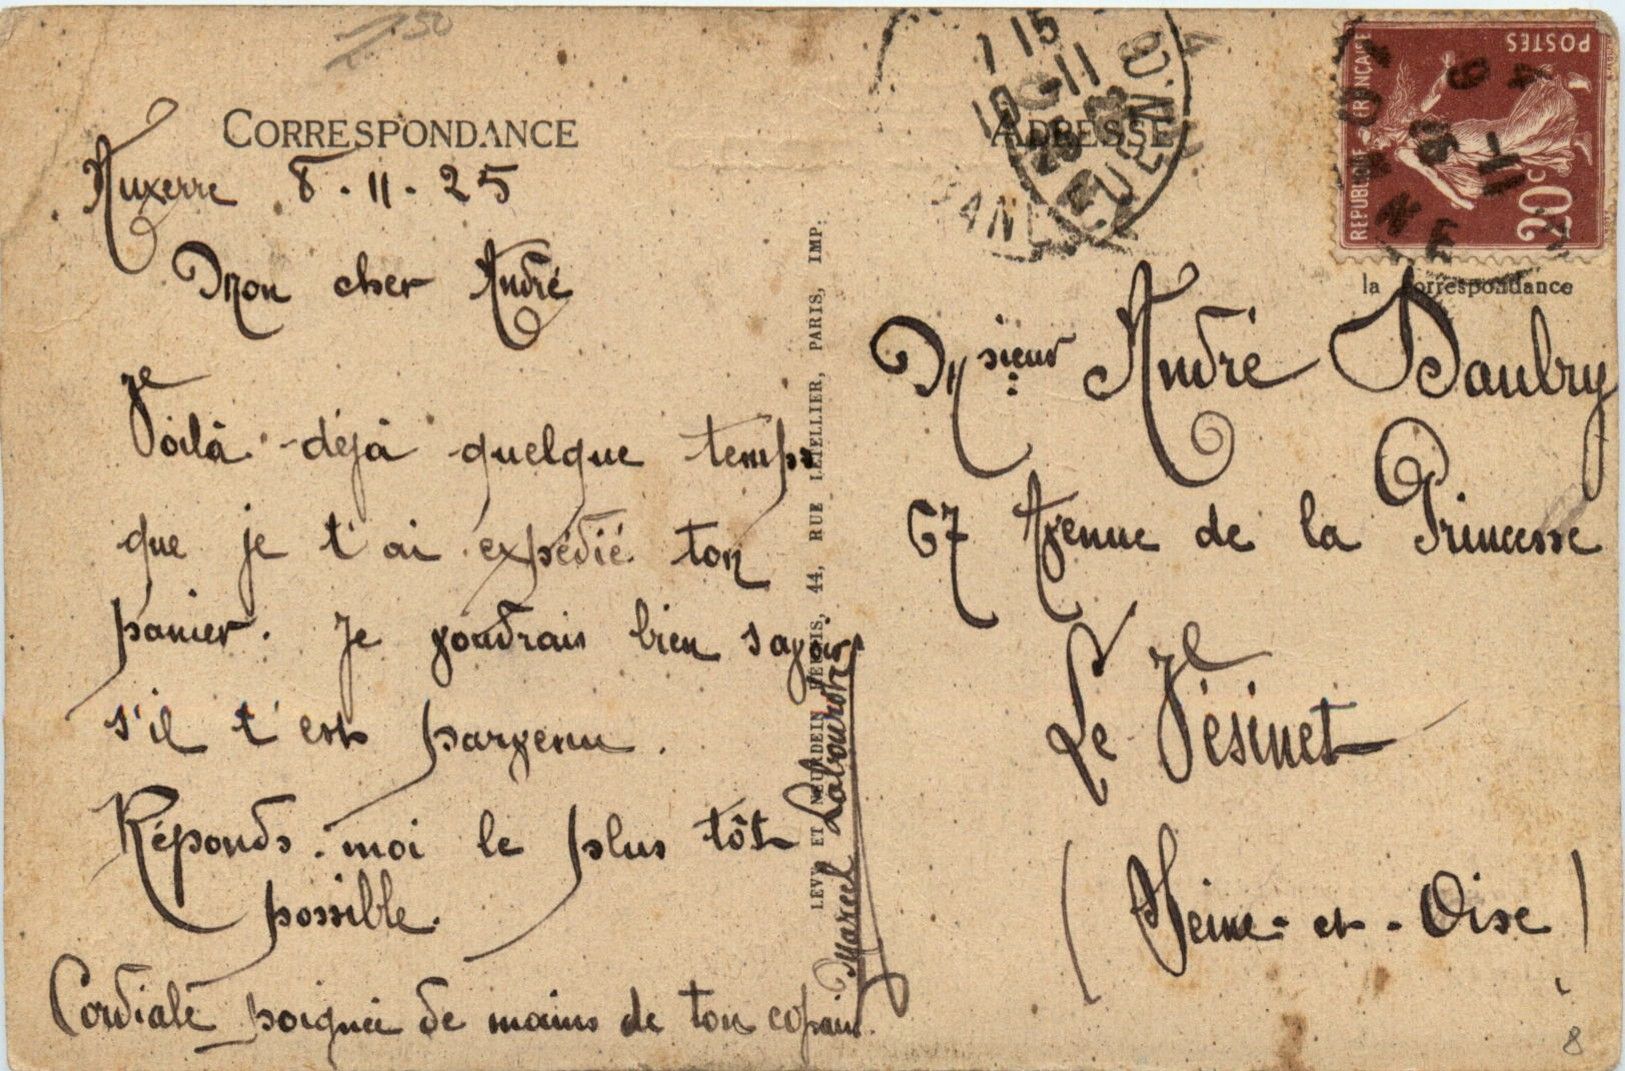 CORRESPONDANCE
Auxerre 8-11-25
Mon cher André
Voilà déjà quelque temps
que je t'ai expédié ton
panier. Je voudrais bien savoir
s'il t'est parvenu.
Réponds-moi le plus tôt
possible.
Cordiale poignée de mains de ton copain.
Marcel
LEVY ET NEURDEIN RÉUNIS, 44, RUE LETELLIER, PARIS, IMP.
ADRESSE
7 15
10-11
25
REPUBLIQUE FRANÇAISE
POSTES
20c
la correspondance
Msieur André Daubry
67 Avenue de la Princesse
Le Vésinet
(Seine-et-Oise)
150
8